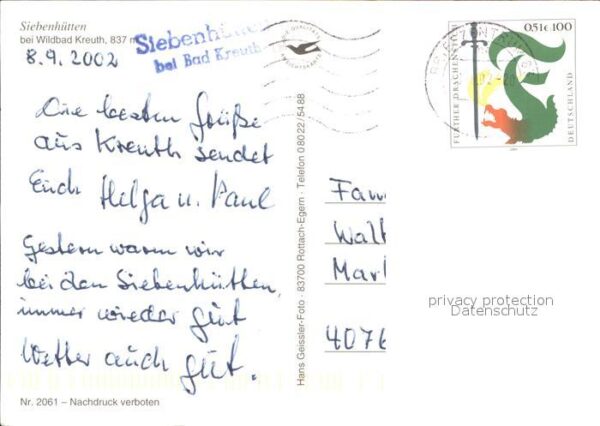 Siebenhütten
bei Wildbad Kreuth, 837 m
8.9.2002
Siebenhütten
bei Bad Kreuth
Die besten Grüße
aus Kreuth sendet
Euch Helga u. Paul
Gestern waren wir
bei den Siebenhütten,
immer wieder gut
Wetter auch gut.
Nr. 2061 – Nachdruck verboten
Hans Geissler-Foto · 83700 Rottach-Egern · Telefon 08022/5488
0,51€ 100
FURTHER DRACHENSTICH
DEUTSCHLAND
BRIEFZENTRUM
Fam
Walt
Mar
4076
privacy protection
Datenschutz